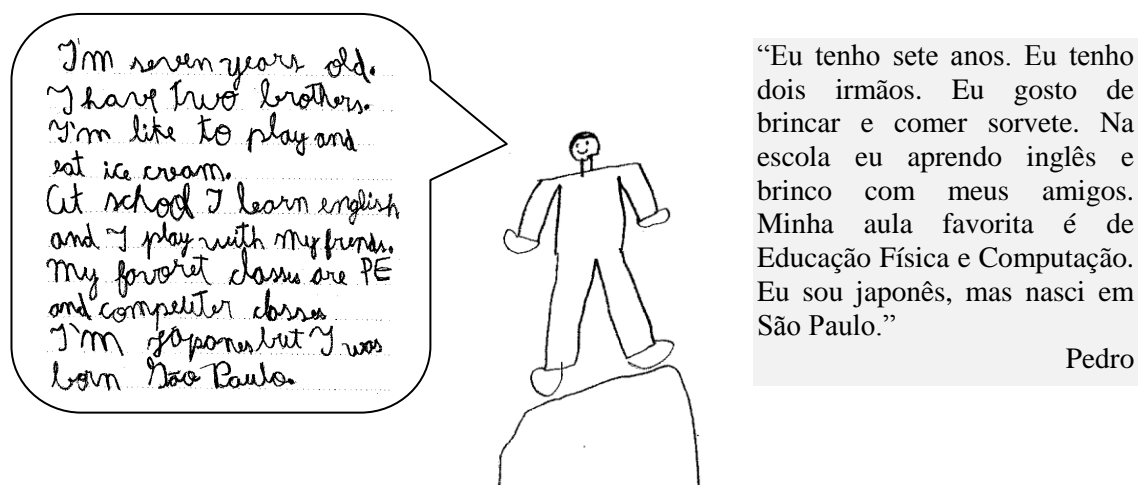 I'm seven years old.
I have two brothers.
I'm like to play and
eat ice cream.
At school I learn english
and I play with my frends.
My favoret classes are PE
and compeuter classes
I'm japones but I was
born São Paulo.
“Eu tenho sete anos. Eu tenho
dois irmãos. Eu gosto de
brincar e comer sorvete. Na
escola eu aprendo inglês e
brinco com meus amigos.
Minha aula favorita é de
Educação Física e Computação.
Eu sou japonês, mas nasci em
São Paulo.”
Pedro